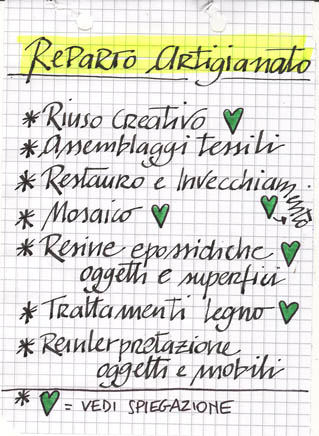 Reparto Artigianato
* Riuso creativo
* Assemblaggi tessili
* Restauro e Invecchiamento
* Mosaico
* Resine epossidiche
oggetti e superfici
* Trattamenti legno
* Reinterpretazione
oggetti e mobili
* = VEDI SPIEGAZIONE